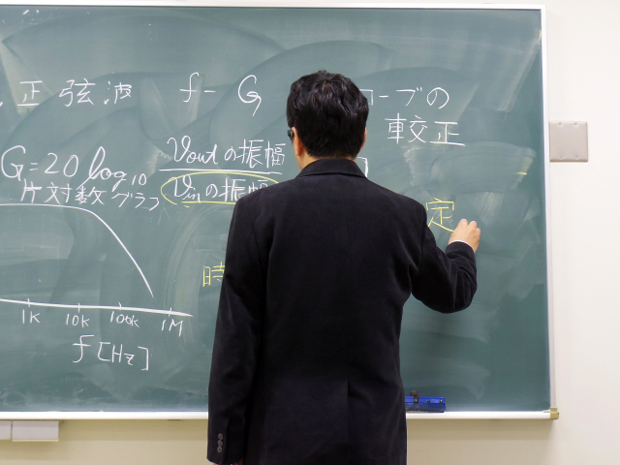 正弦波 f-G
ローブの
較正
G=20 log₁₀ Voutの振幅
Vinの振幅
片対数グラフ
時
定
1K 10K 100k 1M
f[Hz]